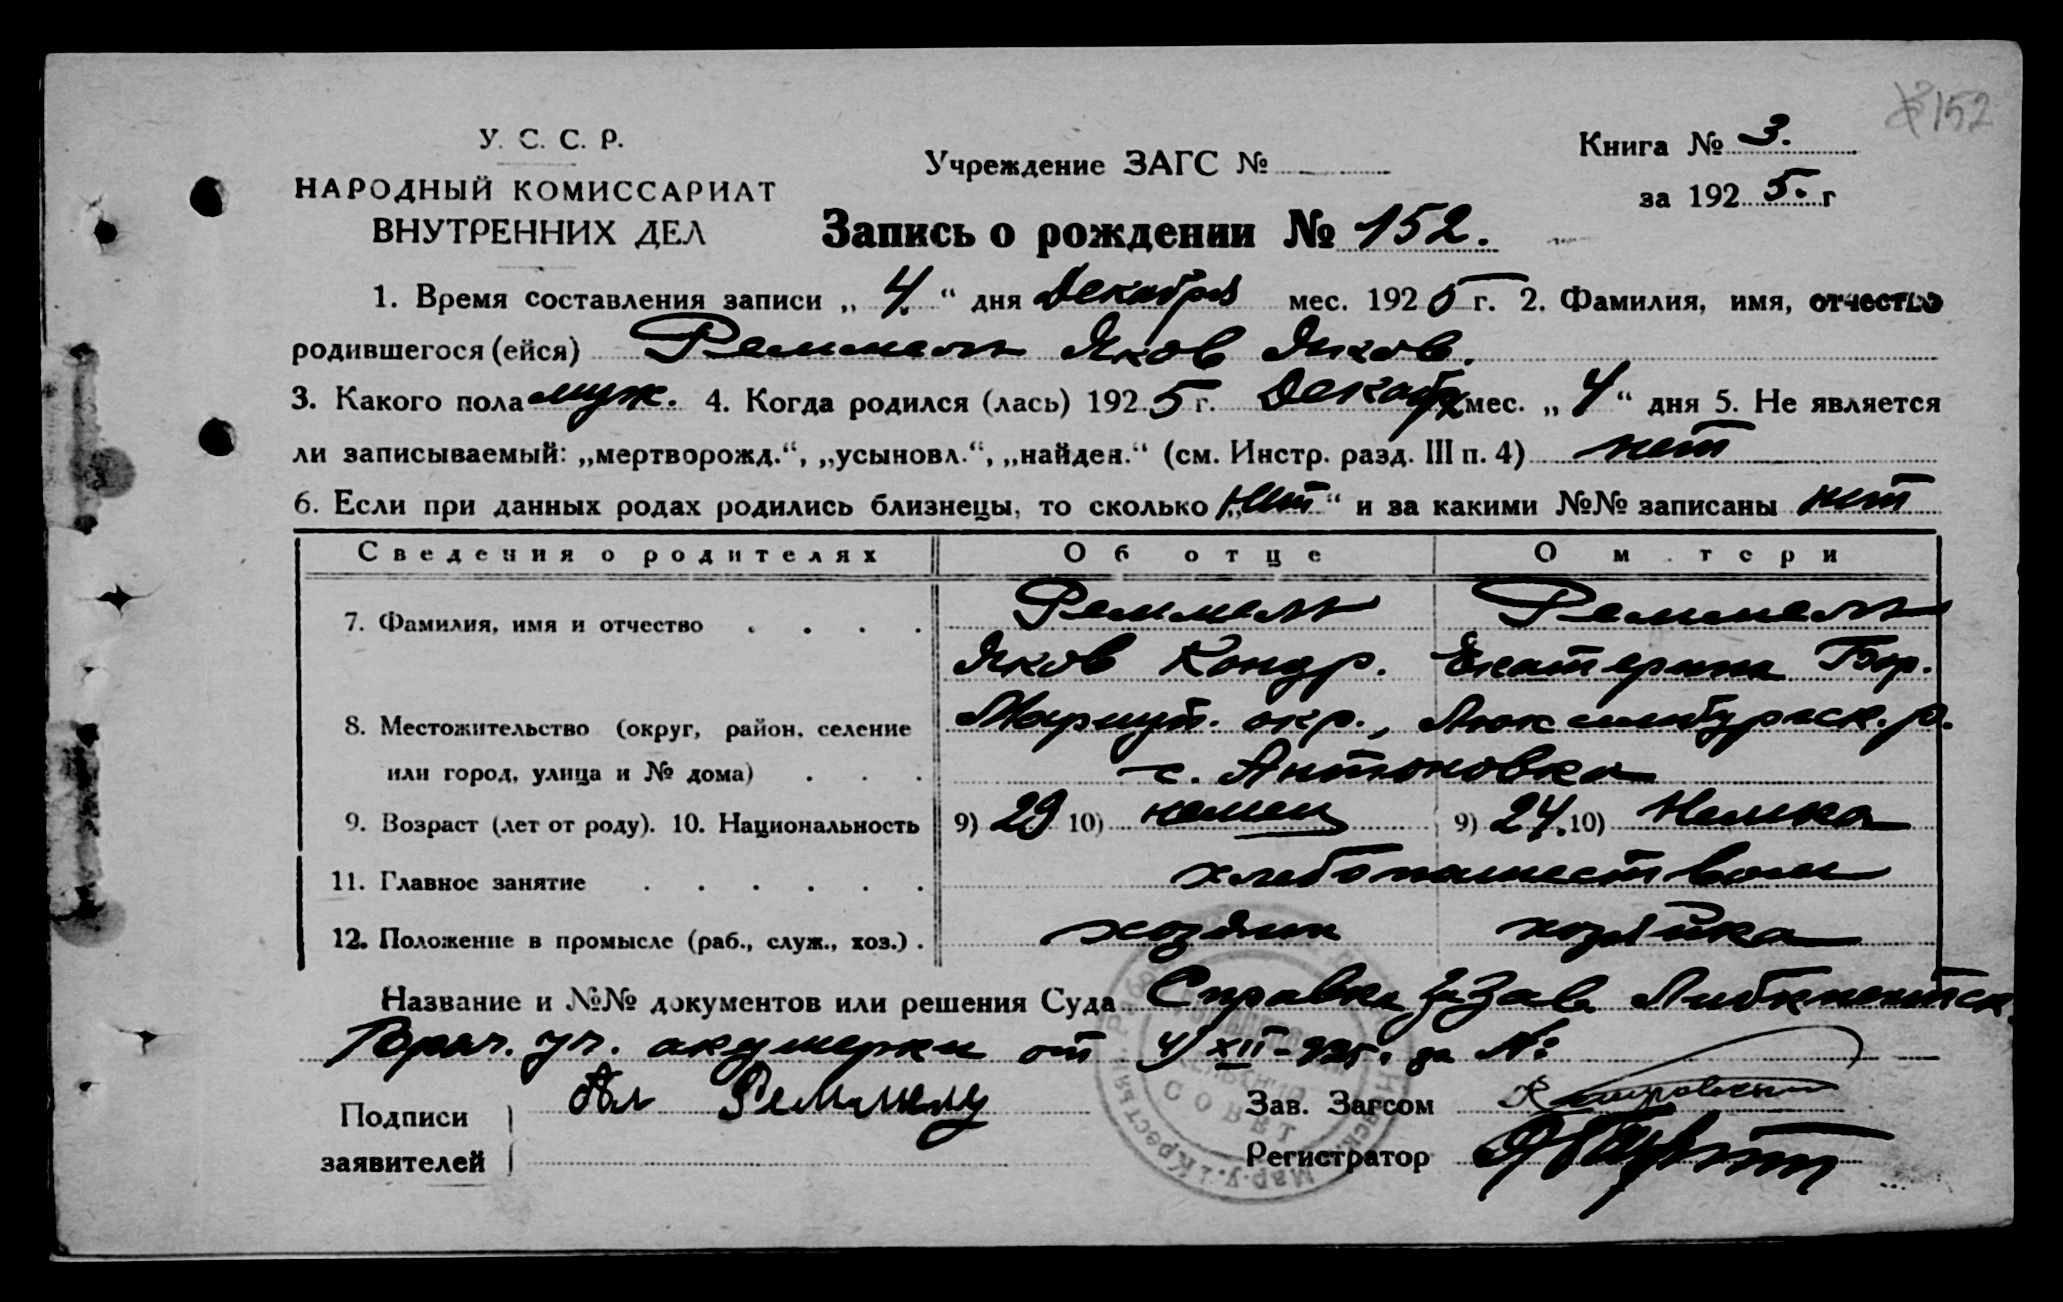 № 152
У. С. С. Р.
НАРОДНЫЙ КОМИССАРИАТ
ВНУТРЕННИХ ДЕЛ
Учреждение ЗАГС №
Книга № 3.
за 1925. г
Запись о рождении № 152.
1. Время составления записи „ 4. “ дня Декабря мес. 1925 г. 2. Фамилия, имя, отчество
родившегося (ейся) Реммель Яков Яков.
3. Какого пола муж. 4. Когда родился (лась) 1925 г. Декабря мес. „ 4 “ дня 5. Не является
ли записываемый: „мертворожд.“, „усыновл.“, „найден.“ (см. Инстр. разд. III п. 4) нет
6. Если при данных родах родились близнецы, то сколько „нет“ и за какими №№ записаны нет
Сведения о родителях Об отце О м тери
7. Фамилия, имя и отчество . . . . Реммель Реммель
Яков Кондр. Екатерина
8. Местожительство (округ, район, селение Мариуп. окр., Люксембургск. р.
или город, улица и № дома) . . . с. Антоновка
9. Возраст (лет от роду). 10. Национальность 9) 29 10) немец 9) 24. 10) Немка
11. Главное занятие . . . . . . хлебопашеством
12. Положение в промысле (раб., служ., хоз.) . хозяин хозяйка
Название и №№ документов или решения Суда Справка Зав.
уч. акушерки от 4/XII-25г. за №:
Подписи Реммель
заявителей
Зав. Загсом
Регистратор
СОВЕТ